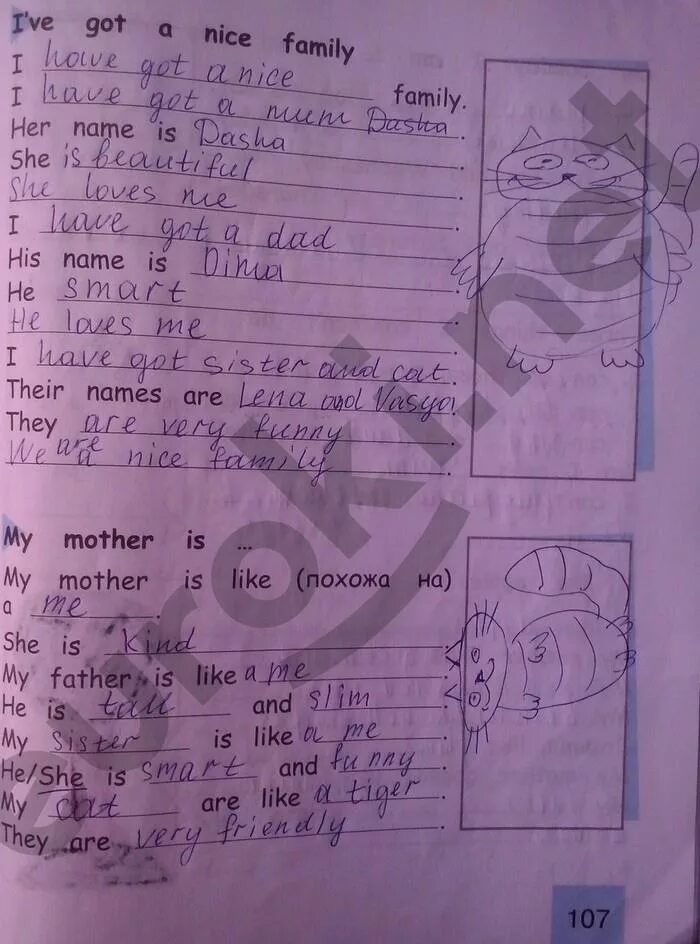 I've got a nice family
I have got a nice family.
I have got a mum Dasha.
Her name is Dasha.
She is beautiful.
She loves me.
I have got a dad.
His name is Dima.
He smart.
He loves me.
I have got sister and cat.
Their names are Lena and Vasya.
They are very funny.
We are a nice family.
My mother is ...
My mother is like (похожа на)
a me.
She is kind.
My father is like a me.
He is tall and slim.
My sister is like a me.
He/She is smart and funny.
My cat are like a tiger.
They are very friendly.
107
euroki.net